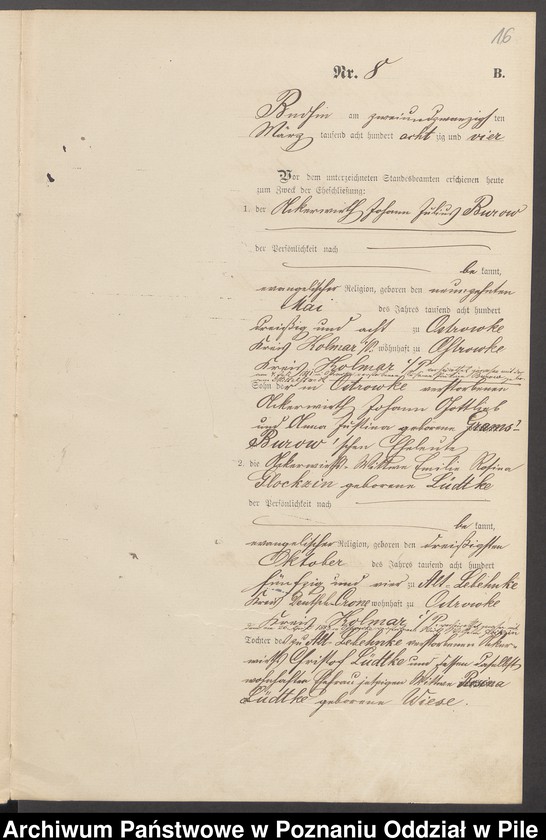 16
Nr. 8 B.
Budsin am zweiundzwanzigsten
März tausend acht hundert achtzig und vier
Vor dem unterzeichneten Standesbeamten erschienen heute
zum Zweck der Eheschließung:
1. der Ackerwirth Johann Julius Burow
der Persönlichkeit nach
bekannt,
evangelischer Religion, geboren den neunzehnten
Mai des Jahres tausend acht hundert
dreißig und acht zu Ostrowke
Kreis Kolmar i/P. wohnhaft zu Ostrowke
Kreis Kolmar i/P.
Sohn der in Ostrowke verstorbenen
Ackerwirth Johann Gottlieb
und Anna Justina geborene Grams-
Burow'schen Eheleute
2. die Ackerwirth-Wittwe Emilie Rosina
Glockzin geborene Lüdtke
der Persönlichkeit nach
bekannt,
evangelischer Religion, geboren den dreißigsten
Oktober des Jahres tausend acht hundert
fünfzig und vier zu Alt-Lebehnke
Kreis Deutsch-Crone wohnhaft zu Ostrowke
Kreis Kolmar i/P.
Tochter des zu Alt-Lebehnke verstorbenen Acker-
wirth Christof Lüdtke und dessen daselbst
wohnhafter Ehefrau jetzigen Wittwe Rosina
Lüdtke geborene Wiese.
Archiwum Państwowe w Poznaniu Oddział w Pile